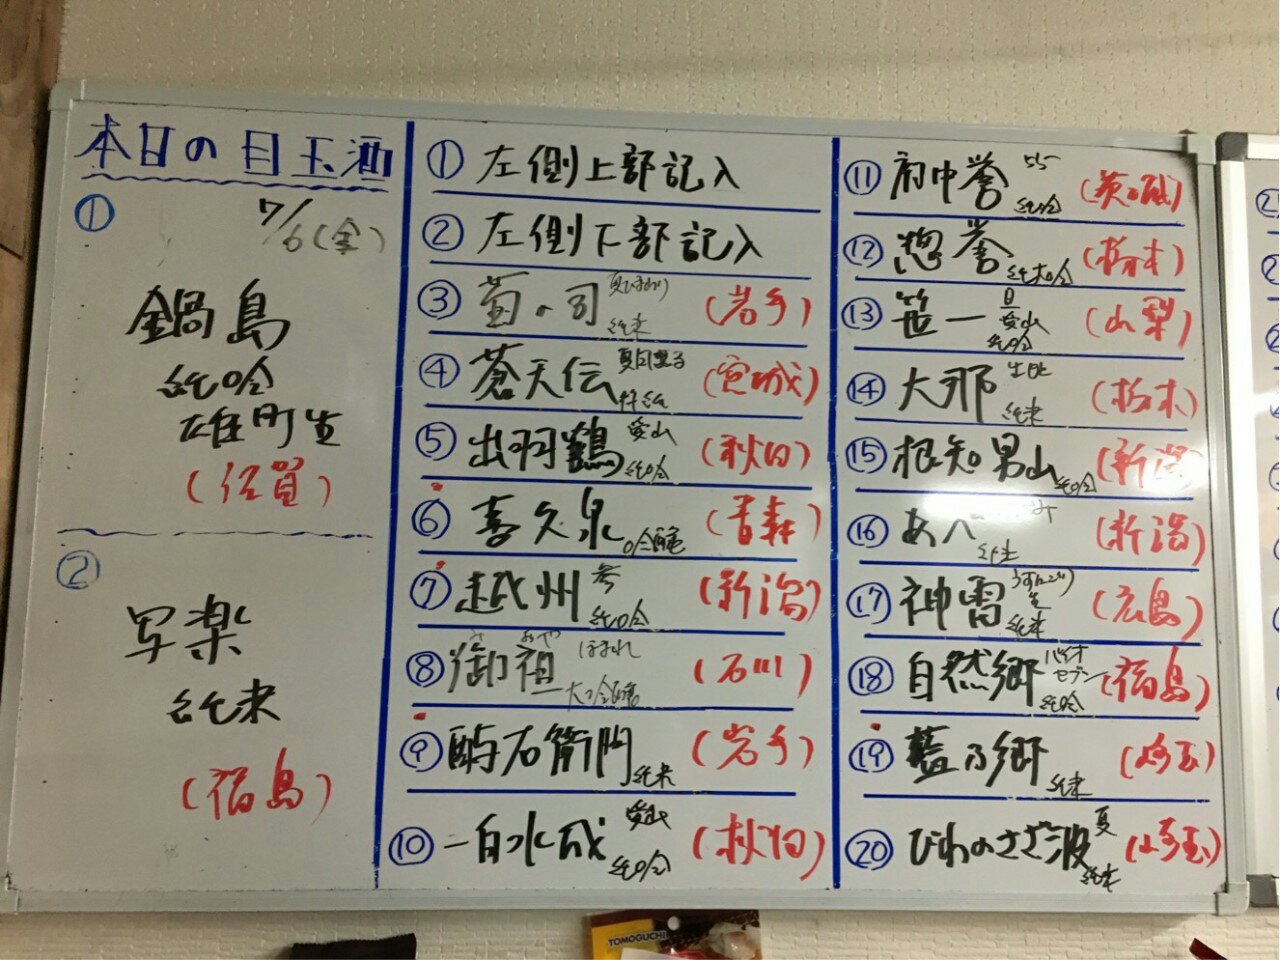 本日の目玉酒
①
7/6(金)
鍋島
純吟
雄町生
(佐賀)
②
写楽
純米
(福島)
① 左側上部記入
② 左側下部記入
③ 菊の司 夏ひまわり 純米 (岩手)
④ 蒼天伝 特純 (宮城)
⑤ 出羽鶴 愛山 純吟 (秋田)
⑥ 喜久泉 吟醸 (青森)
⑦ 越州 参 純吟 (新潟)
⑧ 御祖 みおや ほまれ 大吟醸 (石川)
⑨ 酉与右衛門 純米 (岩手)
⑩ 一白水成 愛山 純吟 (秋田)
⑪ 府中誉 55 純吟 (茨城)
⑫ 惣誉 純大吟 (栃木)
⑬ 笹一 旦 愛山 純吟 (山梨)
⑭ 大那 純米 (栃木)
⑮ 根知男山 純吟 (新潟)
⑯ あべ (新潟)
⑰ 神雷 うすにごり 生 純米 (広島)
⑱ 自然郷 バイオセブン 純吟 (福島)
⑲ 藍の郷 純米 (埼玉)
⑳ びわのさざ波 夏 純米 (埼玉)
TOMOGUCHI